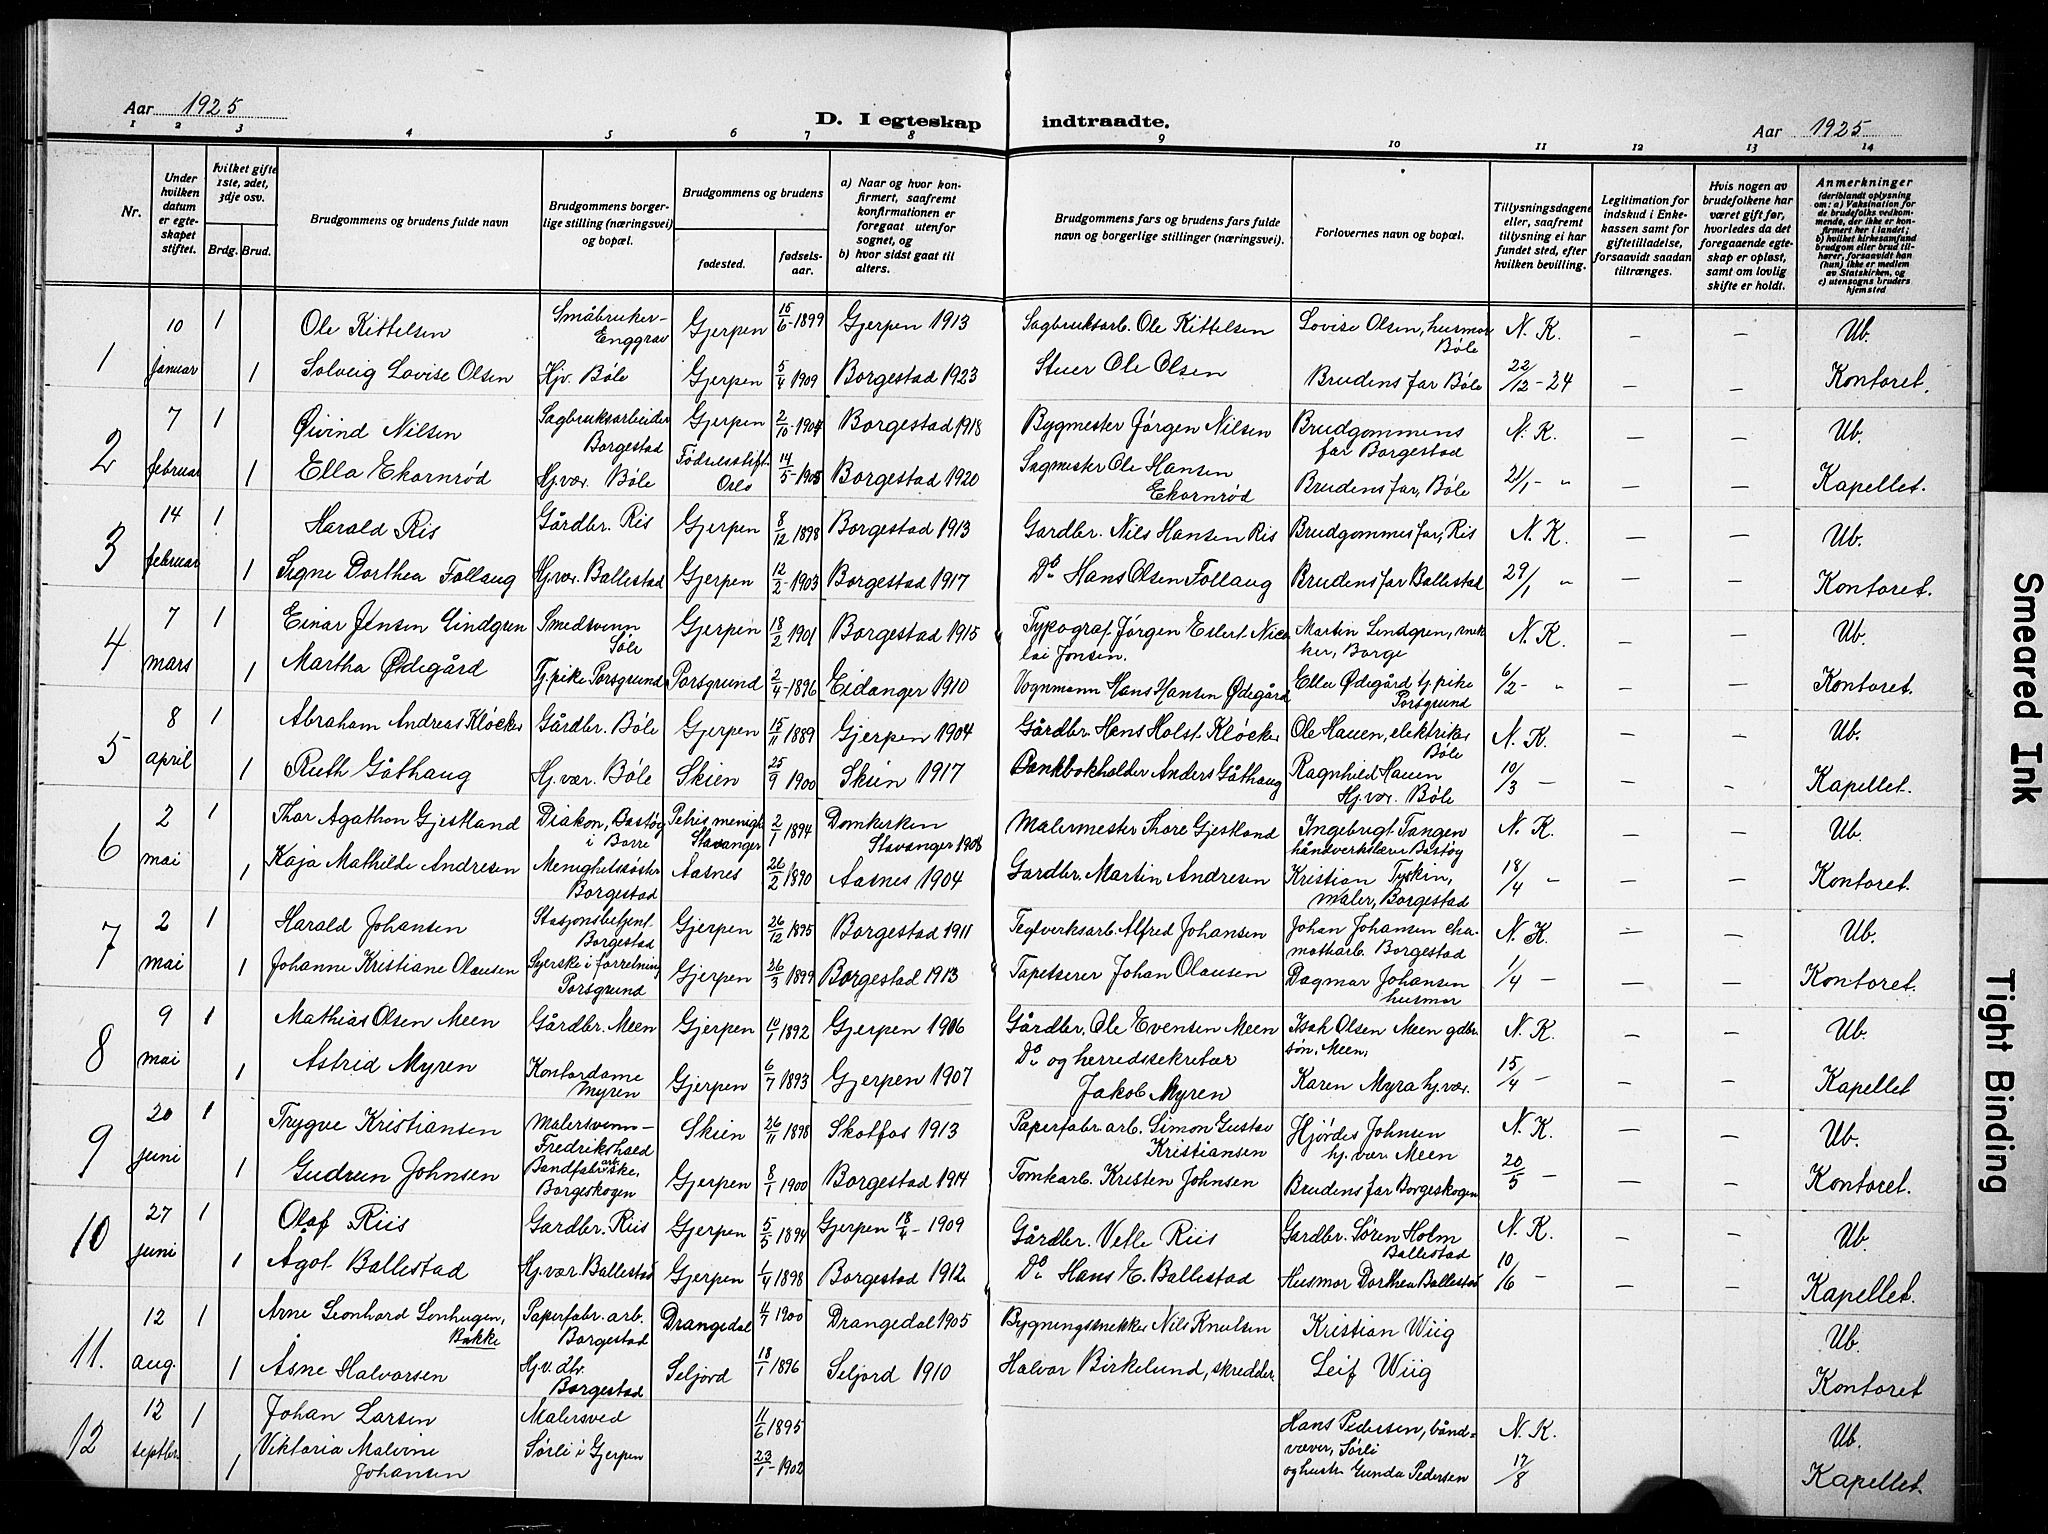 Aar 1925
D. I egteskap indtraadte.
Aar 1925
1 2 3 4 5 6 7 8 9 10 11 12 13 14
Nr.
Under hvilken datum er egteskapet stiftet.
hvilket gifte 1ste, 2det, 3dje osv.
Brdg. Brud.
Brudgommens og brudens fulde navn
Brudgommens borgerlige stilling (næringsvei) og bopæl.
Brudgommens og brudens
fødested.
fødselsaar.
a) Naar og hvor konfirmert, saafremt konfirmationen er foregaat utenfor sognet, og
b) hvor sidst gaat til alters.
Brudgommens fars og brudens fars fulde navn og borgerlige stillinger (næringsvei).
Forlovernes navn og bopæl.
Tillysningsdagene eller, saafremt tillysning ei har fundet sted, efter hvilken bevilling.
Legitimation for indskud i Enkekassen samt for giftetilladelse, forsaavidt saadan tiltrænges.
Hvis nogen av brudefolkene har været gift før, hvorledes da det foregaaende egteskap er opløst, samt om lovlig skifte er holdt.
Anmerkninger (deriblandt oplysning om: a) Vaksination for de brudefolks vedkommende, der ikke er konfirmert her i landet; b) hvilket kirkesamfund brudgom eller brud tilhører, forsaavidt han (hun) ikke er medlem av Statskirken, og c) utensogns bruders hjemsted
1 10 januar 1 Ole Kittelsen Småbruker - Enggrav Gjerpen 15/6-1899 Gjerpen 1913 Sagbruksarb. Ole Kittelsen Lovise Olsen, husmor Bøle N. K. — — Ub.
1 Solveig Lovise Olsen Hjv. Bøle Gjerpen 5/4 1909 Borgestad 1923 Stuer Ole Olsen Brudens far Bøle 22/12-24 — — Kontoret.
2 7 februar 1 Øivind Nilsen Sagbruksarbeider Borgestad Gjerpen 2/10-1904 Borgestad 1918 Bygmester Jørgen Nilsen Brudgommens far Borgestad N. K. — — Ub.
1 Ella Ekornrød Hj.vær. Bøle Fødselsstift. Oslo 14/5-1905 Borgestad 1920 Sagmester Ole Hansen Ekornrød Brudens far, Bøle 21/1 - " — — Kapellet.
3 14 februar 1 Harald Ris Gårdbr. Ris Gjerpen 8/12 1898 Borgestad 1913 Gardbr. Nils Hansen Ris Brudgommes far, Ris N. K. — — Ub.
1 Signe Dorthea Follaug Hj.vær. Ballestad Gjerpen 12/2-1903 Borgestad 1917 Do. Hans Olsen Follaug Brudens far Ballestad 29/1 " — — Kontoret.
4 7 mars 1 Einar Jensen Lindgren Smedsvenn Bøle Gjerpen 18/2 1901 Borgestad 1915 Typograf Jørgen Eilert Nicolai Jonsen. Martin Lindgren, snekker, Borge N. K. — — Ub.
1 Martha Ødegård Tj.pike Porsgrund Porsgrund 2/4-1896 Eidanger 1910 Vognmann Hans Hansen Ødegård Ella Ødegård tj.pike Porsgrund 6/2 - " — — Kontoret.
5 8 april 1 Abraham Andreas Kløcker Gårdbr. Bøle Gjerpen 15/11 1889 Gjerpen 1904 Gårdbr. Hans Holst Kløcker Ole Hauen, elektriker Bøle N. K. — — Ub.
1 Ruth Gåthaug Hj.vær. Bøle Skien 25/9 1900 Skien 1917 Bankbokholder Anders Gåthaug Ragnhild Hauen Hj.vær. Bøle 10/3 — — — Kapellet.
6 2 mai 1 Thor Agathon Gjesteland Diakon, Bastøy i Borre Petri menigh. Stavanger 2/1 1894 Domkirken Stavanger 1908 Malermester Thore Gjesteland Ingebrigt Tangen håndverkslærer Bastøy N. K. — — Ub.
1 Kaja Mathilde Andresen Menighetssøster Borgestad Aasnes 26/2 1890 Aasnes 1904 Gardbr. Martin Andresen Kristian Tyskin, maler, Borgestad 18/4 — — — Kontoret.
7 2 mai 1 Harald Johansen Stasjonsbetjent Borgestad Gjerpen 26/12 1895 Borgestad 1911 Teglverksarb. Alfred Johansen Johan Johansen chamottearb. Borgestad N. K. — — Ub.
1 Johanne Kristiane Olausen Syerske i forretning Porsgrund Gjerpen 26/3 1899 Borgestad 1913 Tapetserer Johan Olausen Dagmar Johansen husmor 1/4 — — — Kontoret.
8 9 mai 1 Mathias Olsen Meen Gårdbr. Meen Gjerpen 10/1 1892 Gjerpen 1906 Gårdbr. Ole Evensen Meen Isak Olsen Meen gdbr. søn, Meen. N. K. — — Ub.
1 Astrid Myren Kontordame Myren Gjerpen 6/7 1893 Gjerpen 1907 Do. og herredssekretær Jakob Myren Karen Myra hj.vær. 15/4 — — — Kapellet
9 20 juni 1 Trygve Kristiansen Malersvenn - Fredrikshald Skien 26/11 1898 Skotfos 1913 Paperfabr. arb. Simon Gustav Kristiansen Hjørdis Johnsen hj.vær. Meen N. K. — — Ub.
1 Gudrun Johnsen Bandfabr. arb.ske, Borgeskogen Gjerpen 8/1 1900 Borgestad 1914 Tomtearb. Kristen Johnsen Brudens far Borgeskogen 20/5 — — — Kontoret.
10 27 juni 1 Olaf Riis Gardbr. Riis Gjerpen 5/5 1894 Gjerpen 18/4-1909 Gårdbr. Vetle Riis Gardbr. Søren Holm Ballestad N. K. — — Ub.
1 Ågot Ballestad Hj.vær. Ballestad Gjerpen 1/4 1898 Borgestad 1912 Do. Hans E. Ballestad Husmor Dorthea Ballestad 10/6 — — — Kapellet.
11. 12 aug. 1 Arne Leonhard Lonhugen, Bakke Paperfabr. arb. Borgestad Drangedal 4/7 1900 Drangedal 1905 Bygningssnekker Nils Knutsen Kristian Wiig Ub.
1 Åsne Halvorsen Hj.v. dtr. Borgestad Seljord 18/1 1896 Seljord 1910 Halvor Birkelund, skredder Leif Wiig Kontoret
12 12 septbr. 1 Johan Larsen Malersved 11/6 1895 Hans Pedersen, båndvæver, Sørli N. K. Ub.
1 Viktoria Malvine Johansen Sørli i Gjerpen 23/1-1902 og hustr. Gunda Pedersen 17/8 Kapellet.
Smeared Ink
Tight Binding